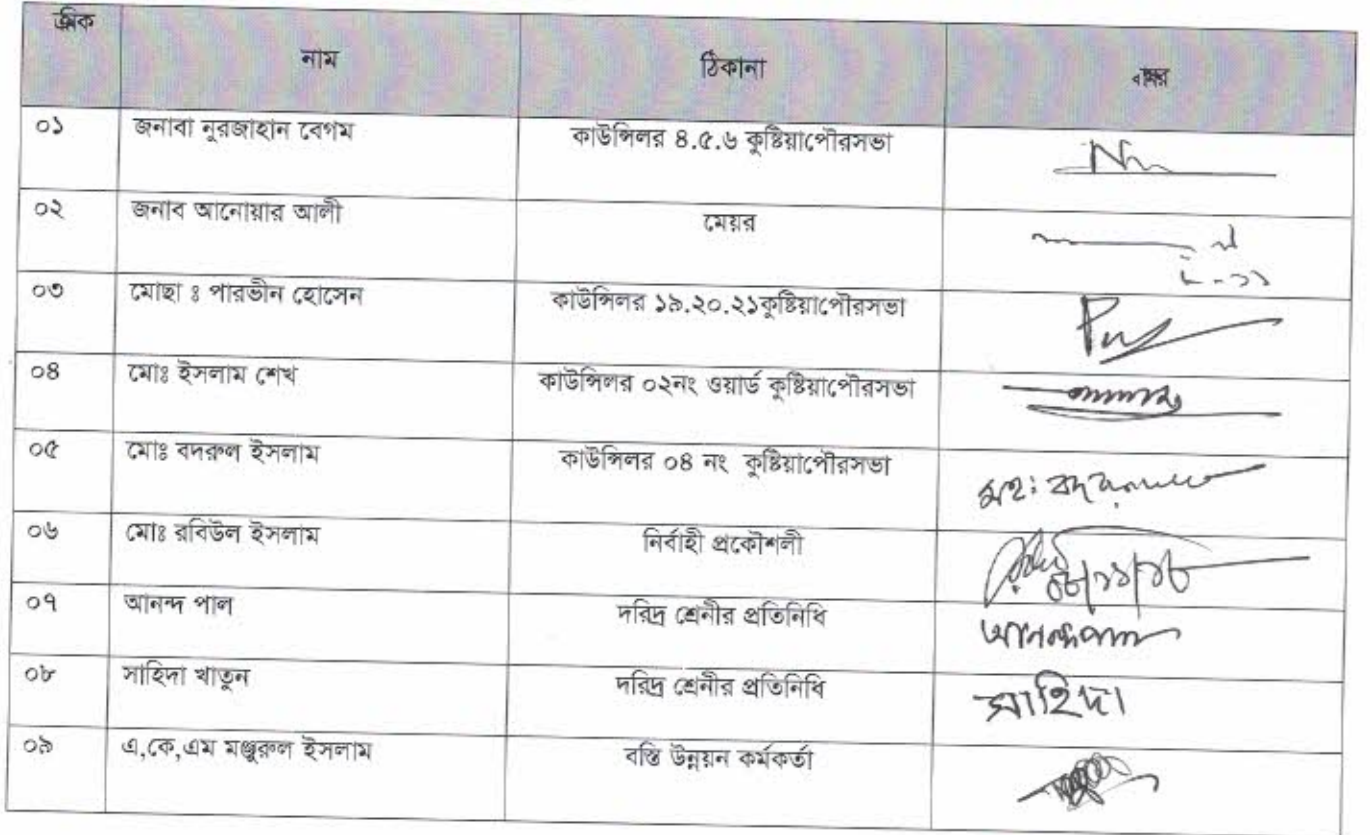 ক্রমিক নাম ঠিকানা স্বাক্ষর
০১ জনাবা নুরজাহান বেগম কাউন্সিলর ৪.৫.৬ কুষ্টিয়াপৌরসভা
০২ জনাব আনোয়ার আলী মেয়র
০৩ মোছা ঃ পারভীন হোসেন কাউন্সিলর ১৯.২০.২১কুষ্টিয়াপৌরসভা
০৪ মোঃ ইসলাম শেখ কাউন্সিলর ০২নং ওয়ার্ড কুষ্টিয়াপৌরসভা
০৫ মোঃ বদরুল ইসলাম কাউন্সিলর ০৪ নং কুষ্টিয়াপৌরসভা
০৬ মোঃ রবিউল ইসলাম নির্বাহী প্রকৌশলী
০৭ আনন্দ পাল দরিদ্র শ্রেনীর প্রতিনিধি আনন্দপাল
০৮ সাহিদা খাতুন দরিদ্র শ্রেনীর প্রতিনিধি সাহিদা
০৯ এ,কে,এম মঞ্জুরুল ইসলাম বস্তি উন্নয়ন কর্মকর্তা